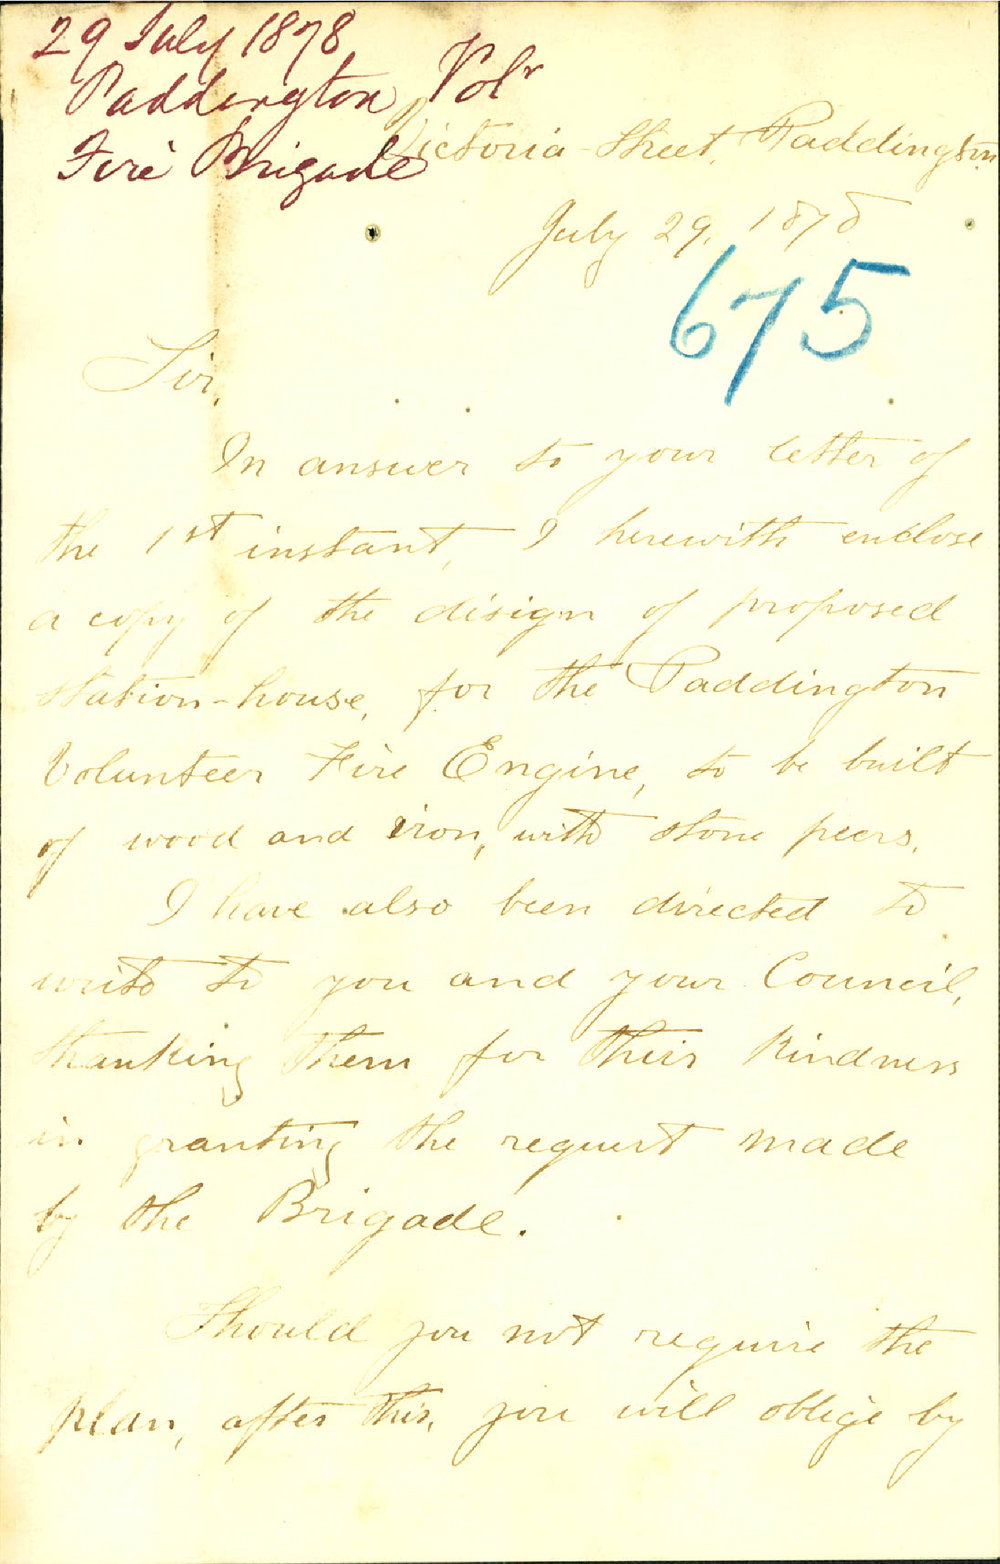 29 July 1878
Paddington Volr
Fire Brigade
Victoria Street, Paddington
July 29, 1878
675
Sir,
In answer to your letter of
the 1st instant, I herewith enclose
a copy of the disign of proposed
station-house, for the Paddington
Volunteer Fire Engine, to be built
of wood and iron, with stone peers.
I have also been directed to
write to you and your Council,
thanking them for their kindness
in granting the request made
by the Brigade.
Should you not require the
plan, after this, you will oblige by